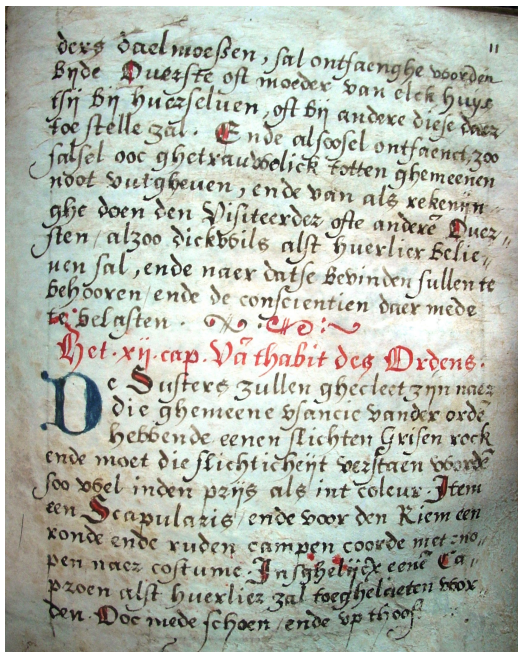 11
ders daelmoessen, sal ontfaenghe woorden
bijde Overste oft moeder van elck huys
tsij bij huerselven, oft bij andere diese daer
toe stelle zal. Ende alsoosel ontfaenct, zoo
salsel ooc ghetrauwelick totten ghemeenen
noot wutgheven, ende van als rekenijn"
ghe doen den Visiteerder ofte andere Over"
sten / alzoo dickwils alst huerlier belie"
ven sal, ende naer datse bevinden sullen te
behooren / ende de conscientien daer mede
te belasten.
Het .xij. cap. Vā thabit des Ordens.
De Susters zullen ghecleet zijn naer
die ghemeene usancie vander ordē
hebbende eenen slichten Grisen rock
ende moet die slichticheijt verstaen woordē
soo wel inden prijs als int coleur. Item
een Scapularis / ende voor den Riem een
ronde ende ruden campen coorde met cno"
pen naer costume. Insghelijcx eenē Ca"
proen alst huerlier zal toeghelaeten woor"
den. Ooc mede schoen / ende up thooft